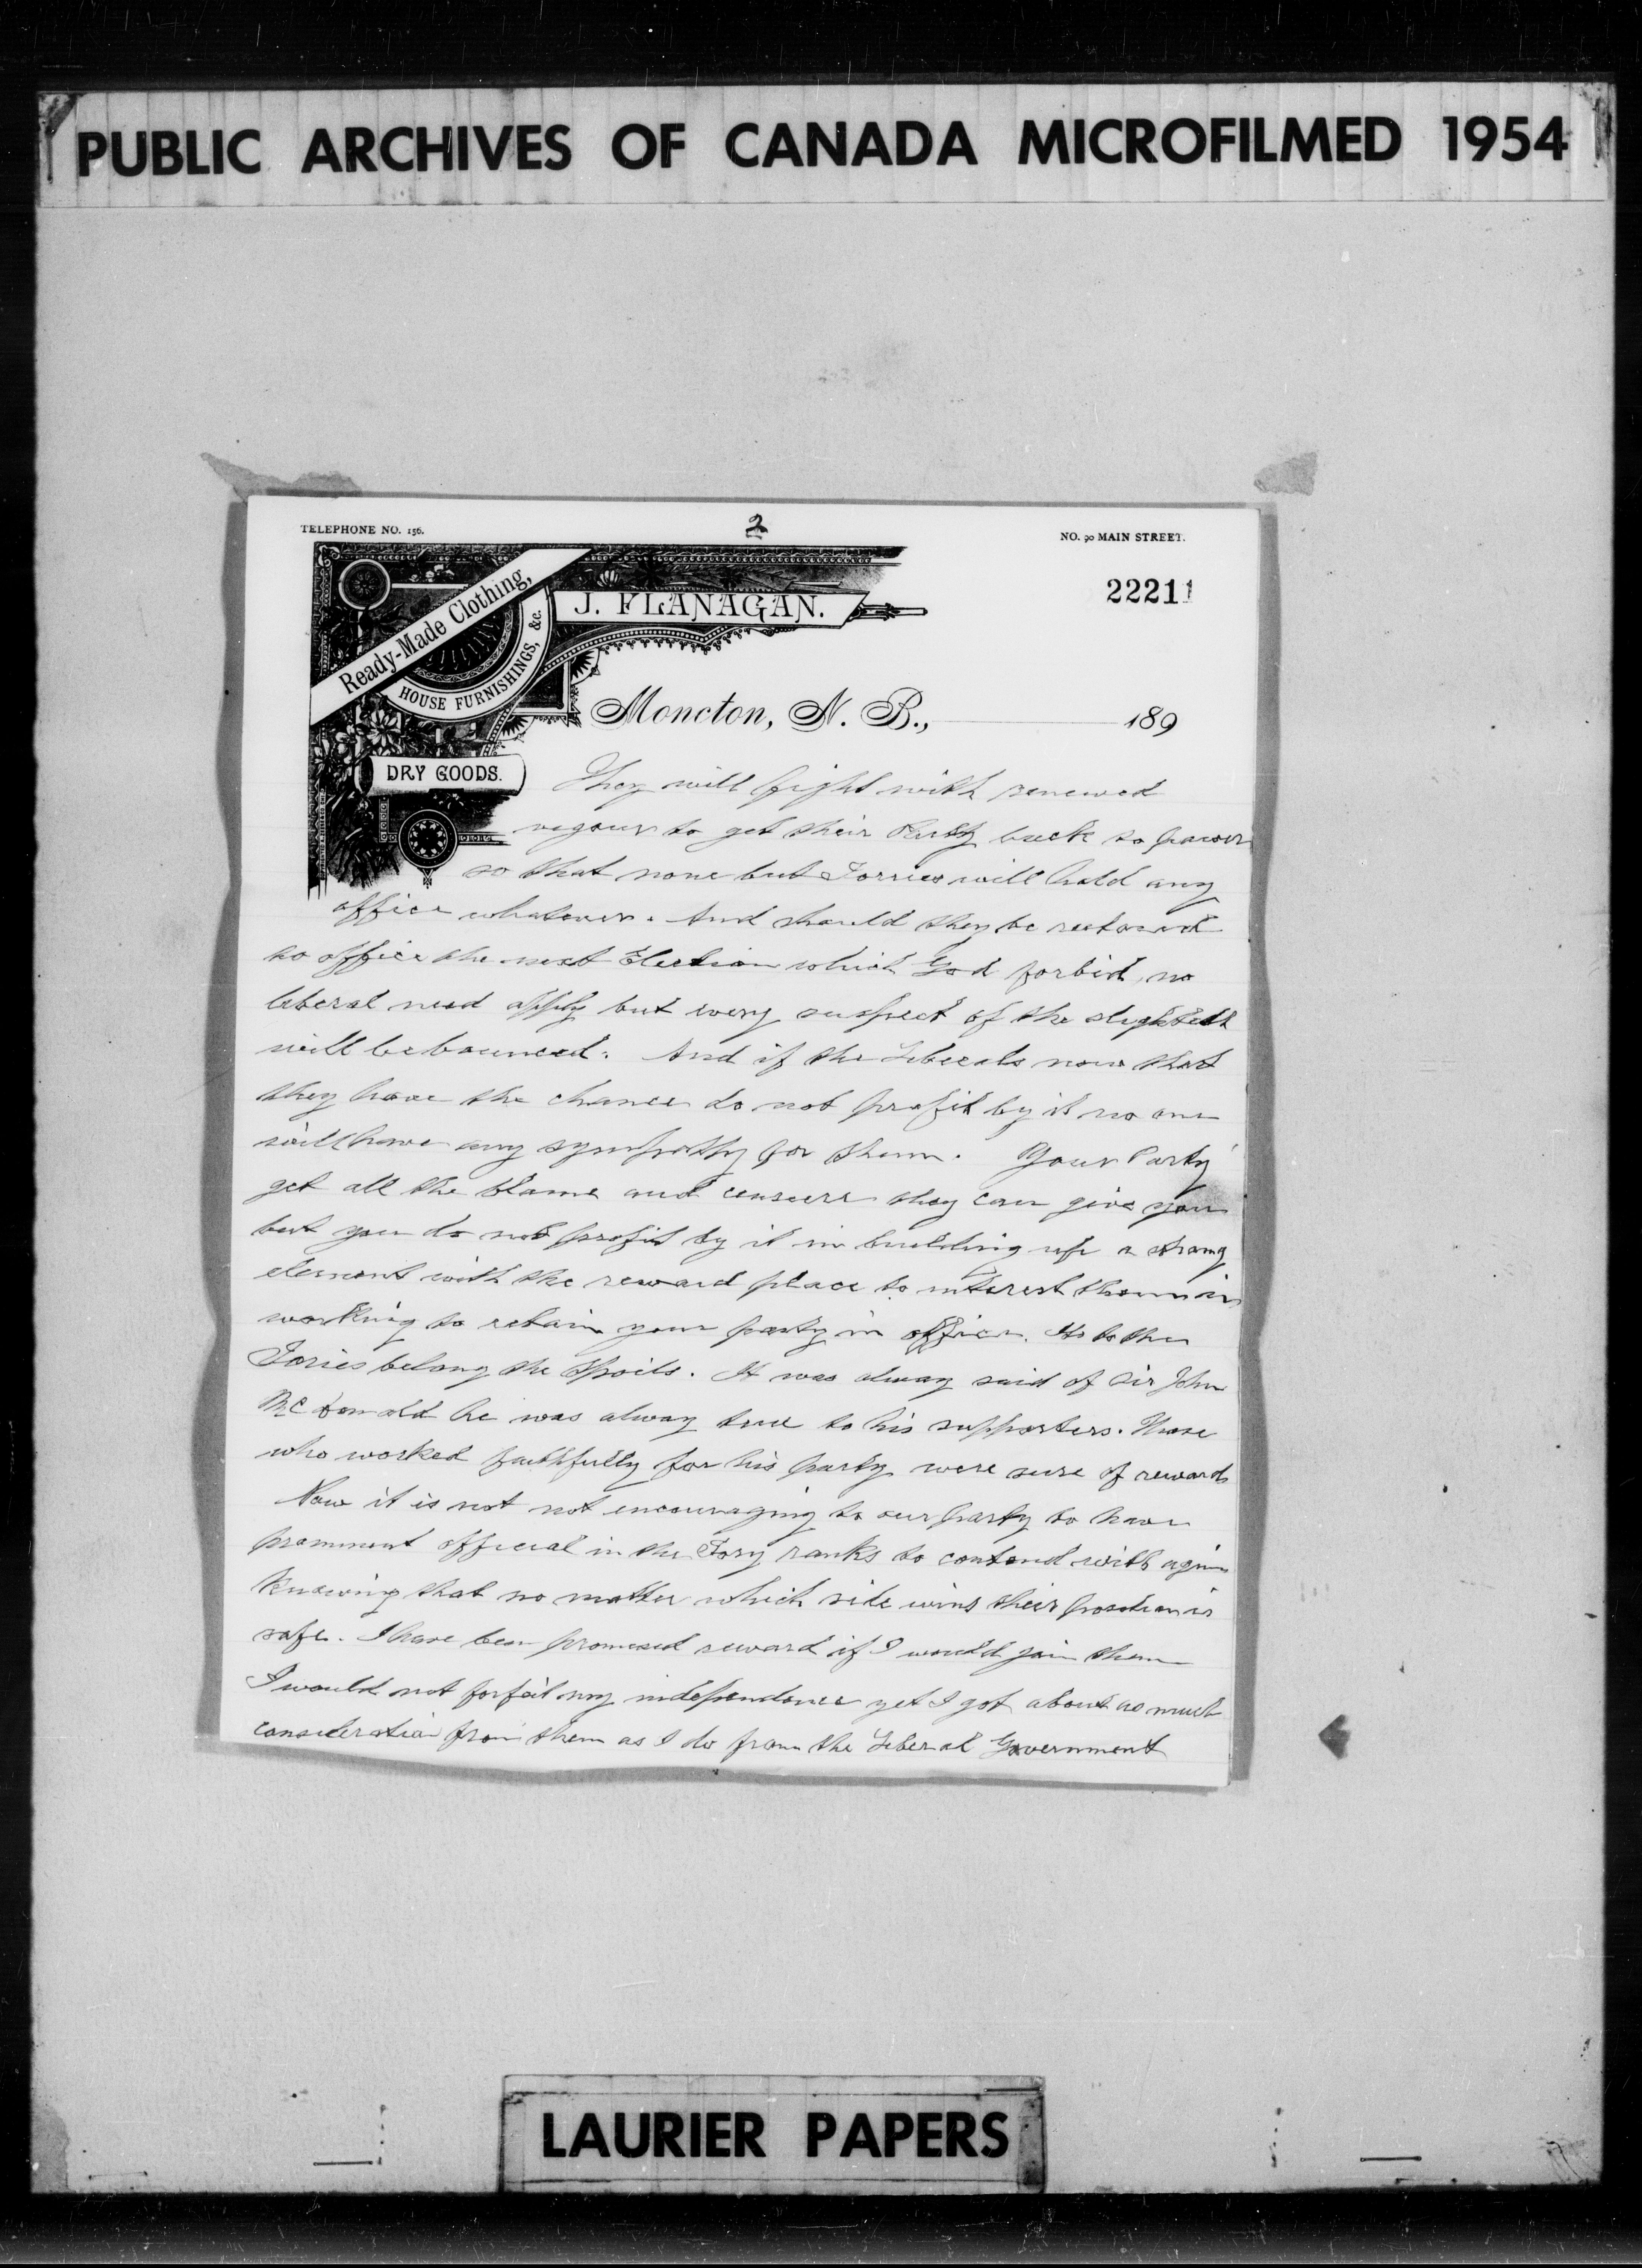 PUBLIC ARCHIVES OF CANADA MICROFILMED 1954
TELEPHONE NO. 156.
2
NO. 90 MAIN STREET.
22211
J. FLANAGAN.
Ready-Made Clothing,
HOUSE FURNISHINGS, &c.
Moncton, N. B., 189
DRY GOODS.
They will fight with renewed
vigour to get their Party back to power
so that none but Torries will hold any
office whatever. And should they be restored
to office the next Election which God forbid, no
liberal need apply but every suspect of the slightest
will be bounced. And if the Liberals now that
they have the chance do not profit by it no one
will have any sympathy for them. Your Party
get all the blame and censure they can give you
but you do not profit by it in building up a strong
element with the reward place to interest them in
working to retain your party in office. As to the
Tories belong the Spoils. It was alway said of Sir John
McDonald he was alway true to his supporters. Those
who worked faithfully for his party were sure of reward
Now it is not not encouraging to our party to have
prominent official in the Tory ranks to contend with again
Knowing that no matter which side wins their position is
safe. I have been promised reward if I would join them
I would not forfeit my independence yet I got about as much
consideration from them as I do from the Liberal Government
LAURIER PAPERS